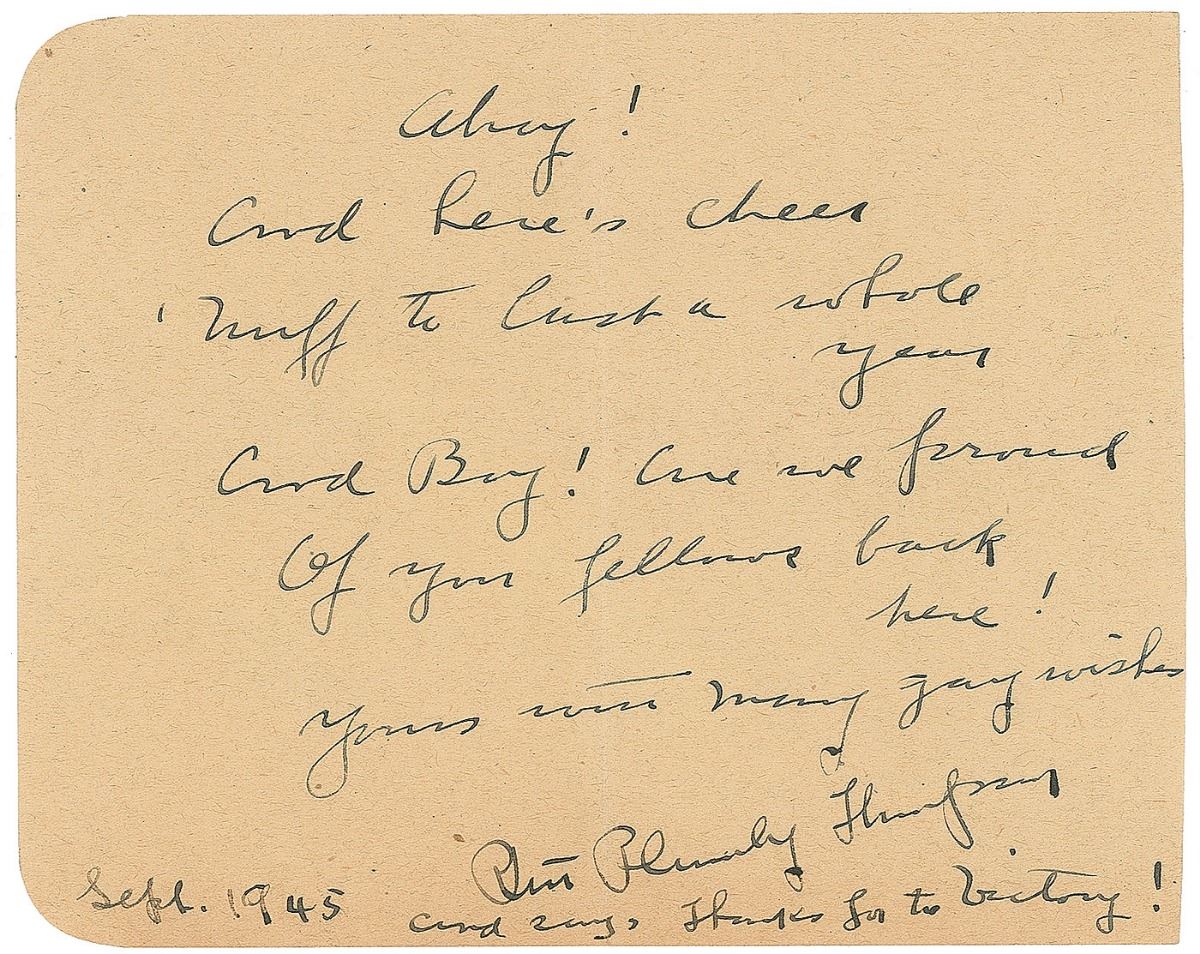 Ahoy!
And here's cheer
'Nuff to last a whole
year
And Boy! Are we proud
Of you fellows back
here!
Yours with many gay wishes
Ruth Plumly Thompson
Sept. 1945
and says thanks for the Victory!